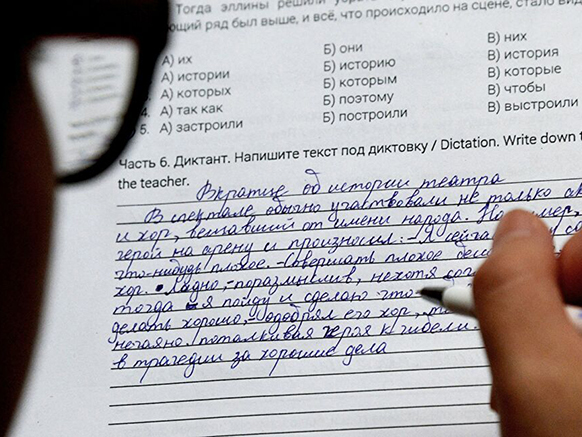 Тогда эллины решили
ющий ряд был выше, и всё, что происходило на сцене, стало
А) их Б) они В) них
А) истории Б) историю В) история
А) которых Б) которым В) которые
4. А) так как Б) поэтому В) чтобы
5. А) застроили Б) построили В) выстроили
Часть 6. Диктант. Напишите текст под диктовку / Dictation. Write down
the teacher.
Вкратце об истории театра
В спектакле обычно участвовали не только
и хор, вещавший от имени народа.
герой на арену и произносил: - Я
что-нибудь плохое. - Совершать плохое
хор. - Ладно, - поразмыслив, нехотя
тогда я пойду и сделаю
делать хорошо, одобрял его хор,
нечаянно поталкивая героя к гибели.
в трагедии за хорошие дела